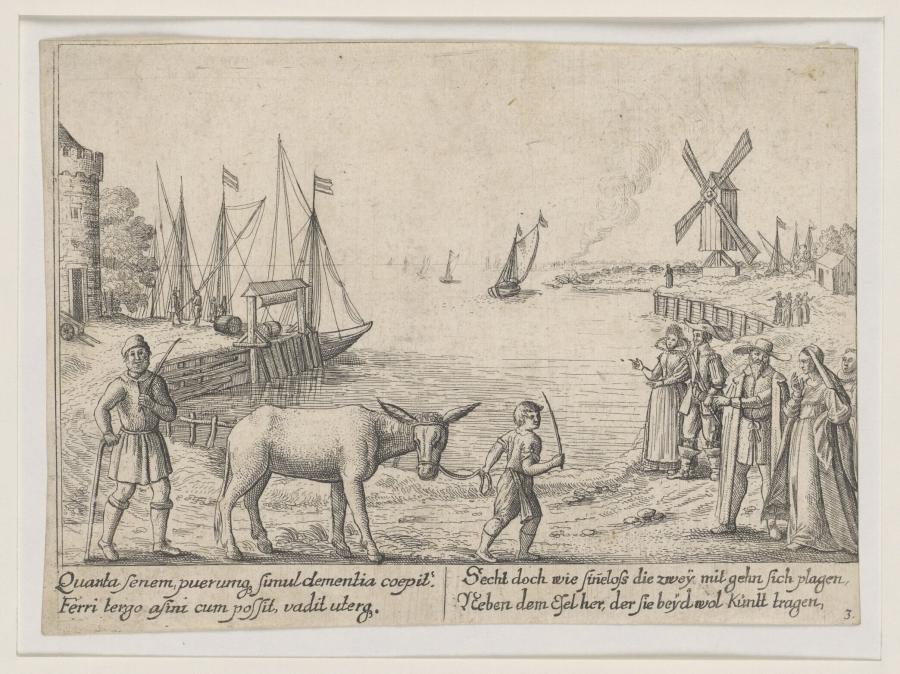 Quanta senem, puerumq̨ simul dementia coepit!
Ferri tergo asini cum possit, vadit uterq̨.
Secht doch wie sin̄eloss die zweÿ mit gehn sich plagen,
Neben dem Esel her, der sie beÿd wol Kūntt tragen,
3.